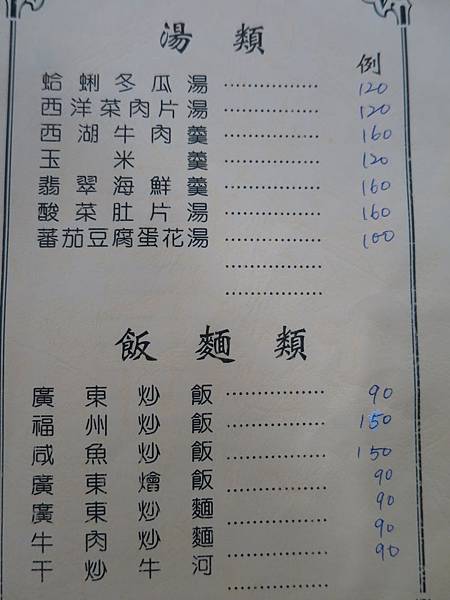 湯類
例
蛤蜊冬瓜湯 120
西洋菜肉片湯 120
西湖牛肉羹 160
玉米羹 120
翡翠海鮮羹 160
酸菜肚片湯 160
蕃茄豆腐蛋花湯 100
飯麵類
廣東炒飯 90
福州炒飯 150
咸魚炒飯 150
廣東燴飯 90
廣東炒麵 90
牛肉炒麵 90
干炒牛河 90